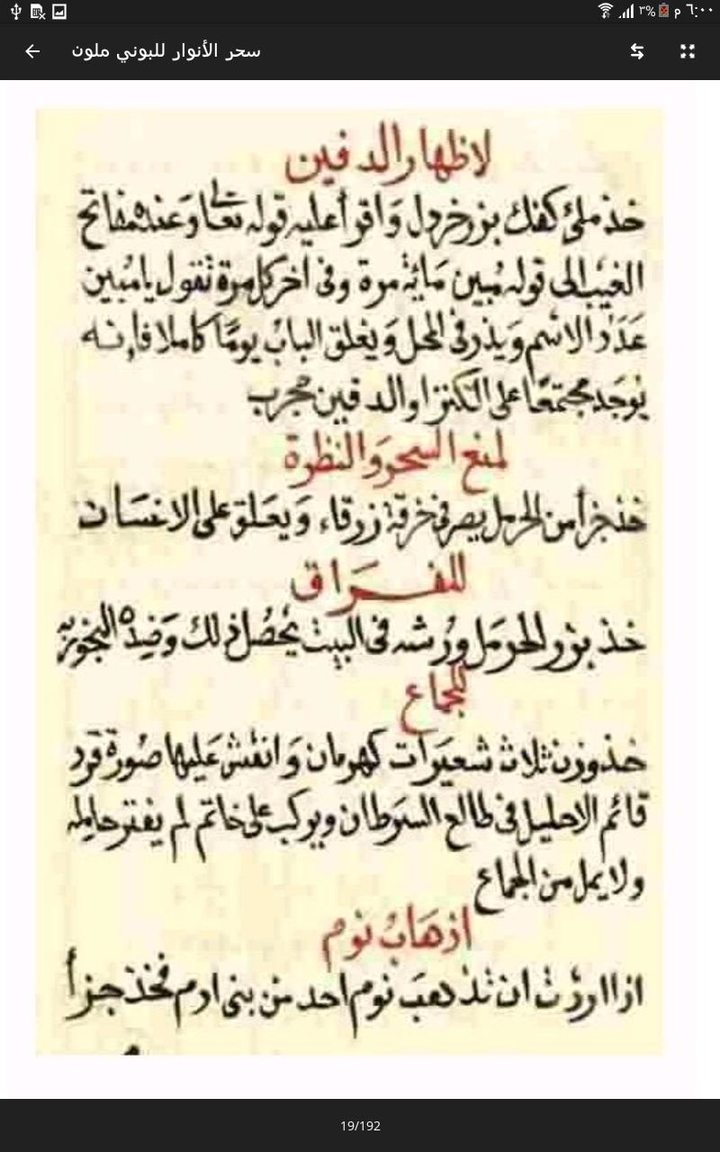 ٦:٠٠ م ٣%
سحر الأنوار للبوني ملون
لاظهار الدفين
خذ ملئ كفك بزر خردل وَاقرأ عليه قوله تعَالى وَعنده مفاتح
الغيب الى قوله مُبين مَائة مرة وفى اخر كل مرة تقول يا مُبين
عَدَد الاسم وَيذر فى المحل وَيغلق البابُ يومًا كاملا فإنه
يُوجَد مجتمعًا على الكنز او الدفين مجرب
لمنع السحر وَالنظرة
خذ جزأ من الحرمل يصر فى خرقة زرقاء وَيعَلق على الانسَان
للفرَاق
خذ بزر الحرمل ورُشه فى البيت يحصُل ذلك وَضِده البخور به
للجماع
خذ وزن ثلاث شعيرَات كهرمان وَانقش عَليها صُورة قرد
قائم الاحليل فى طالع السرَطان ويركب على خاتم لم يفتر حامله
ولا يمل من الجماع
اذهَابُ نوم
اذا اردْت ان تذهبَ نوم احد من بنى ادم فخذ جزأ
19/192